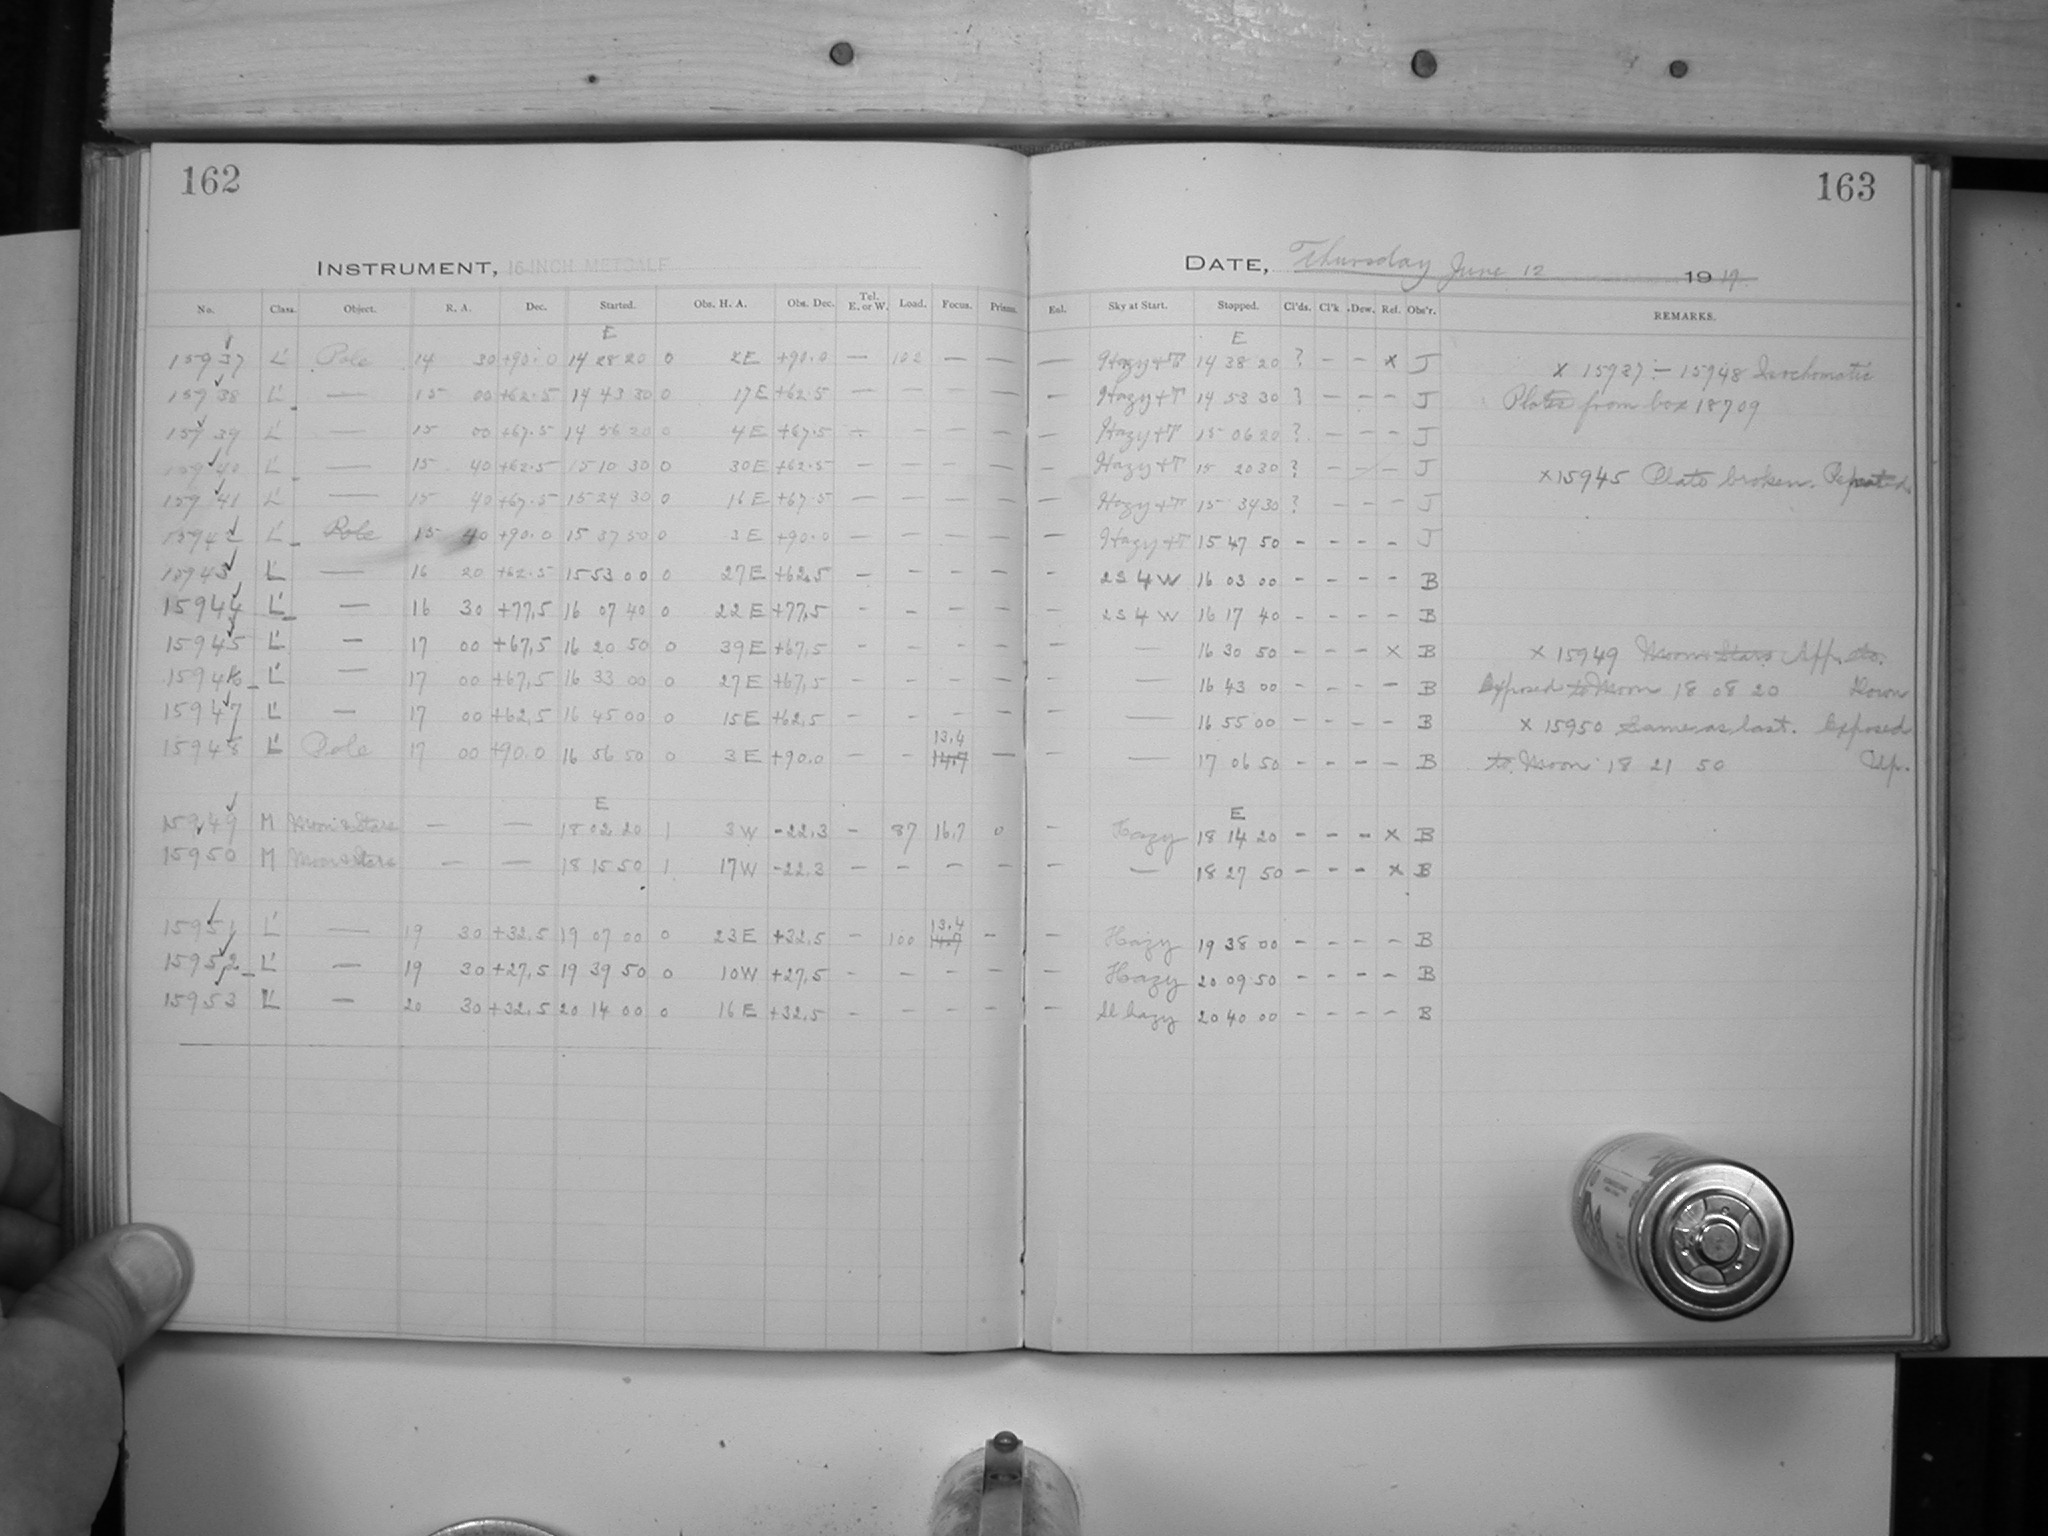 162
INSTRUMENT, 16-INCH METCALF
No. Class. Object. R. A. Dec. Started. Obs. H. A. Obs. Dec. Tel. E. or W. Load. Focus. Prisms.
E
15937 L' Pole 14 30 +90.0 14 28 20 0 2E +90.0 — 102 — —
15938 L' — 15 00 +62.5 14 43 30 0 17E +62.5 — — — —
15939 L' — 15 00 +67.5 14 56 20 0 4E +67.5 — — — —
15940 L' — 15 40 +62.5 15 10 30 0 30E +62.5 — — — —
15941 L' — 15 40 +67.5 15 24 30 0 16E +67.5 — — — —
15942 L' Pole 15 40 +90.0 15 37 50 0 3E +90.0 — — — —
15943 L' — 16 20 +62.5 15 53 00 0 27E +62.5 — — — —
15944 L' — 16 30 +77.5 16 07 40 0 22E +77.5 — — — —
15945 L' — 17 00 +67.5 16 20 50 0 39E +67.5 — — — —
15946 L' — 17 00 +67.5 16 33 00 0 27E +67.5 — — — —
15947 L' — 17 00 +62.5 16 45 00 0 15E +62.5 — — — —
13.4
15948 L' Pole 17 00 +90.0 16 56 50 0 3E +90.0 — — 14.7 —
E
15949 M Moon & Stars — — 18 02 20 1 3W -22.3 — 87 16.7 0
15950 M Moon & Stars — — 18 15 50 1 17W -22.3 — — — —
13.4
15951 L' — 19 30 +32.5 19 07 00 0 23E +32.5 — 100 14.7 —
15952 L' — 19 30 +27.5 19 39 50 0 10W +27.5 — — — —
15953 L' — 20 30 +32.5 20 14 00 0 16E +32.5 — — — —
163
DATE, Thursday June 12 1919
Enl. Sky at Start. Stopped. Cl'ds. Cl'k. Dew. Ref. Obs'r. REMARKS.
E
— Hazy+T 14 38 20 ? — — x J x 15937 – 15948 Isochomatic
— Hazy+T 14 53 30 ? — — — J Plates from box 18709
— Hazy+T 15 06 20 ? — — — J
— Hazy+T 15 20 30 ? — — — J x 15945 Plate broken. Repeated.
— Hazy+T 15 34 30 ? — — — J
— Hazy+T 15 47 50 — — — — J
— 2S4W 16 03 00 — — — — B
— 2S4W 16 17 40 — — — — B
— — 16 30 50 — — — x B x 15949 Moon & Stars App. do.
— — 16 43 00 — — — — B Exposed to Moon 18 08 20 Down
— — 16 55 00 — — — — B x 15950 Same as last. Exposed
— — 17 06 50 — — — — B to Moon 18 21 50 Up.
E
— Hazy 18 14 20 — — — x B
— — 18 27 50 — — — x B
— Hazy 19 38 00 — — — — B
— Hazy 20 09 50 — — — — B
— Sl hazy 20 40 00 — — — — B